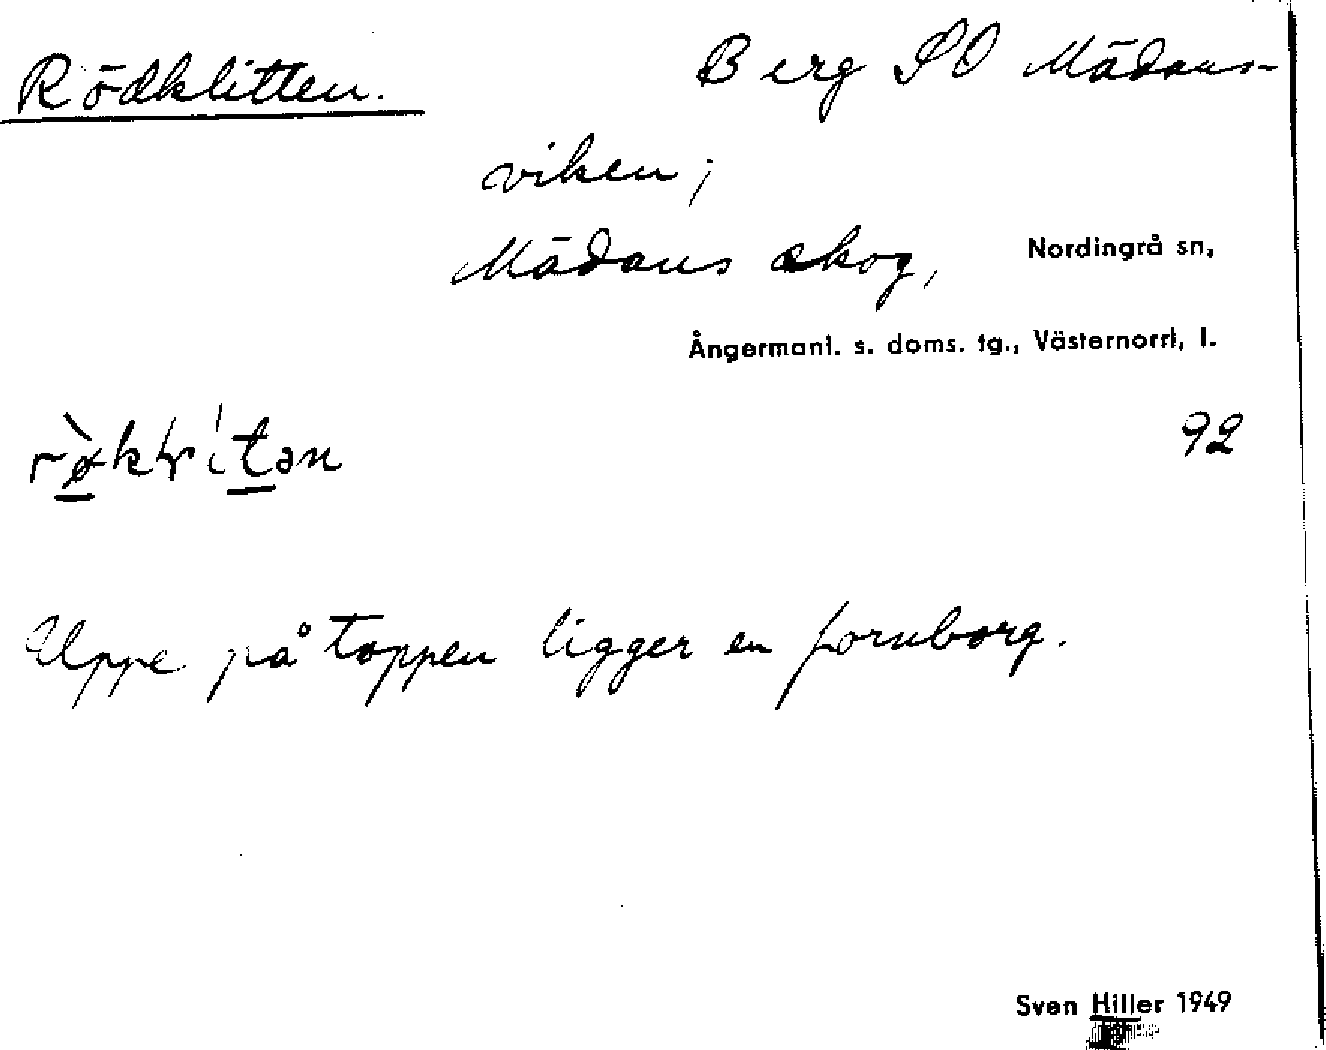 Rödklitten.
Berg SO Mädans-
viken;
Mädans skog,
Nordingrå sn,
Ångermanl. s. doms. tg., Västernorrl, l.
92
Uppe på toppen ligger en fornborg.
Sven Hiller 1949